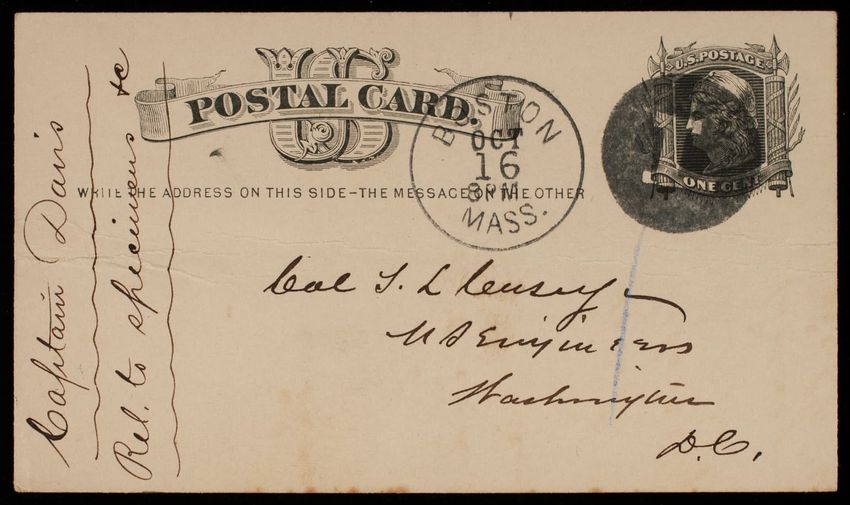 US
POSTAL CARD.
WRITE THE ADDRESS ON THIS SIDE-THE MESSAGE ON THE OTHER
BOSTON
OCT
16
8PM
MASS.
U.S. POSTAGE
ONE CENT
Col T. L Casey
U S Engineers
Washington
D.C.
Captain Davis
Rel. to specimens &c